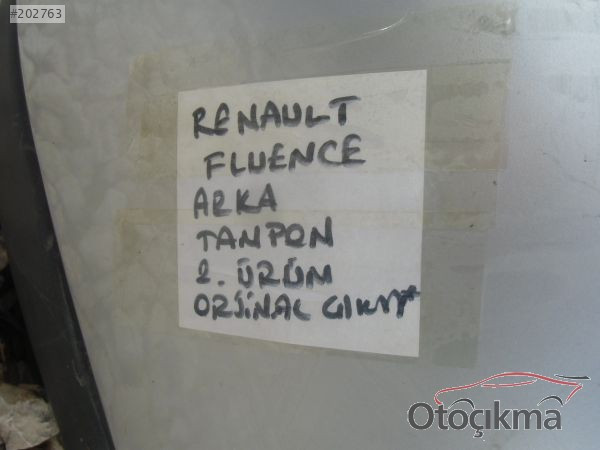 #202763
RENAULT
FLUENCE
ARKA
TAMPON
2. ÜRÜN
ORJİNAL ÇIKMA
Otoçıkma